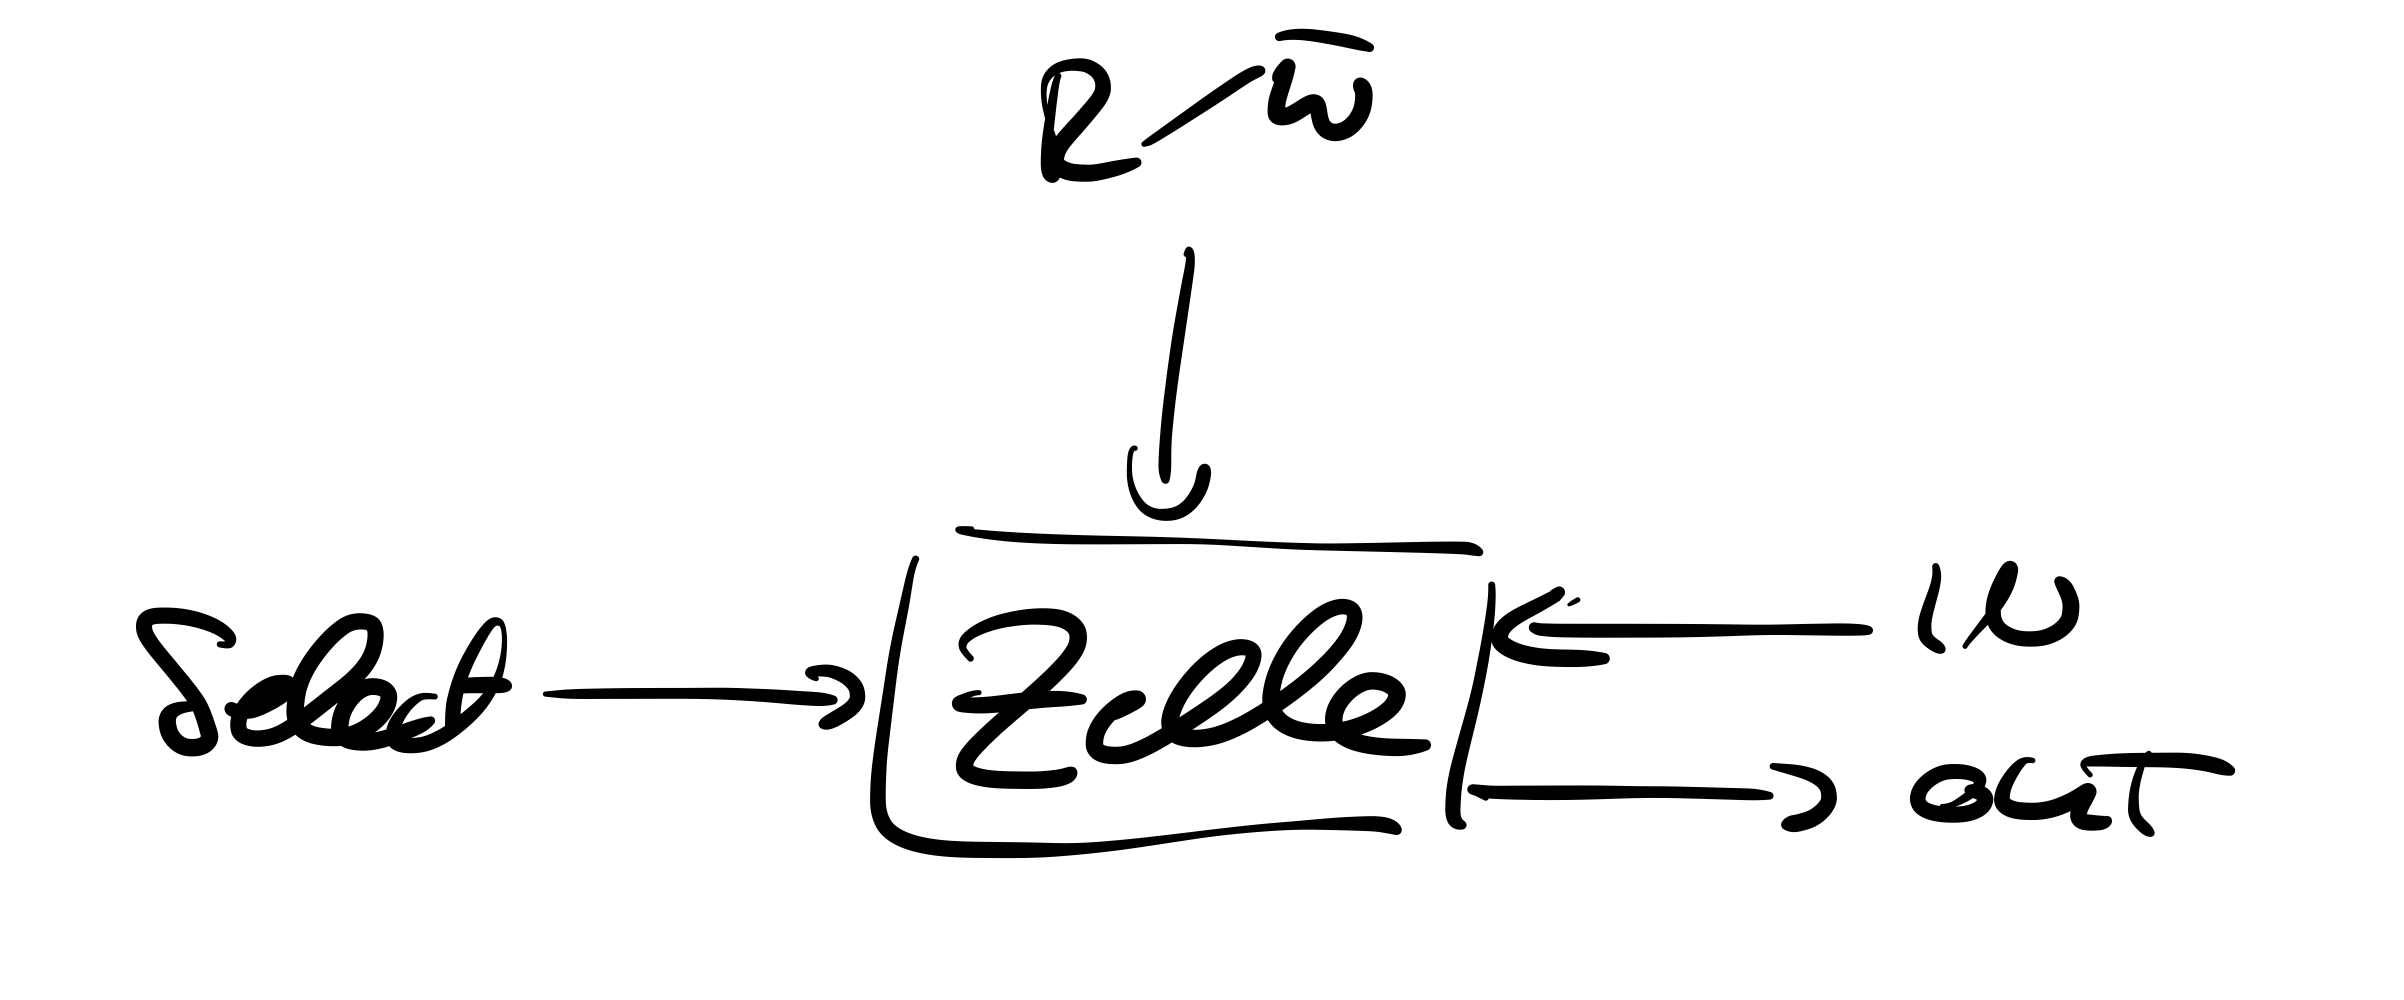 R/W̅
Select
Zelle
IN
OUT